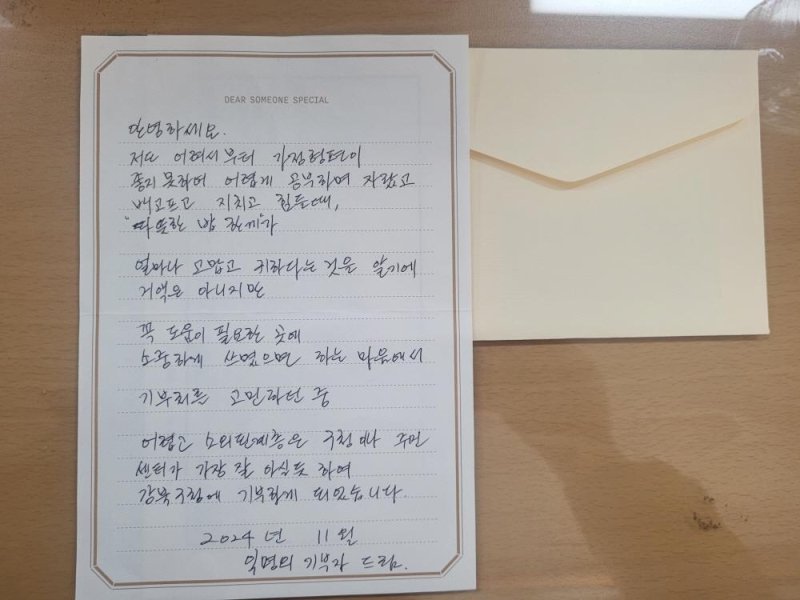 DEAR SOMEONE SPECIAL
안녕하세요.
저도 어려서부터 가정형편이
좋지 못하여 어렵게 공부하며 자랐고
배고프고 지치고 힘들때,
"따뜻한 밥 한끼"가
얼마나 고맙고 귀하다는 것을 알기에
거액은 아니지만
꼭 도움이 필요한 곳에
소중하게 쓰였으면 하는 마음에서
기부처를 고민하던 중
어렵고 소외된계층은 구청이나 주민
센터가 가장 잘 아실듯 하여
강북구청에 기부하게 되었습니다.
2024년 11월
익명의 기부자 드림.